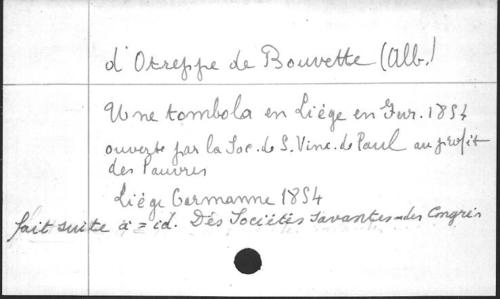 d'Otreppe de Bouvette (Alb.)
Une tombola en Liège en Jur. 1854
ouverte par la Soc. de S. Vinc. de Paul au profit
des Pauvres
Liège Carmanne 1854
fait suite à = id. Des Sociétés savantes = des Congrès